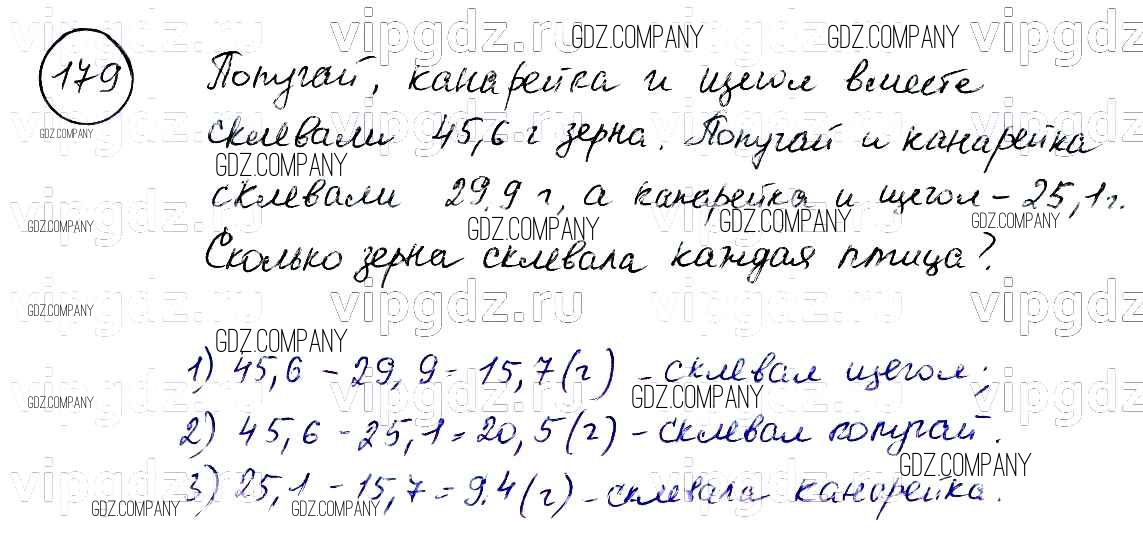 179
Попугай, канарейка и щегол вместе
склевали 45,6 г зерна. Попугай и канарейка
склевали 29,9 г, а канарейка и щегол – 25,1 г.
Сколько зерна склевала каждая птица?
1) 45,6 - 29,9 = 15,7 (г) - склевал щегол;
2) 45,6 - 25,1 = 20,5 (г) - склевал попугай.
3) 25,1 - 15,7 = 9.4 (г) - склевала канарейка.
vipgdz.ru
GDZ.COMPANY